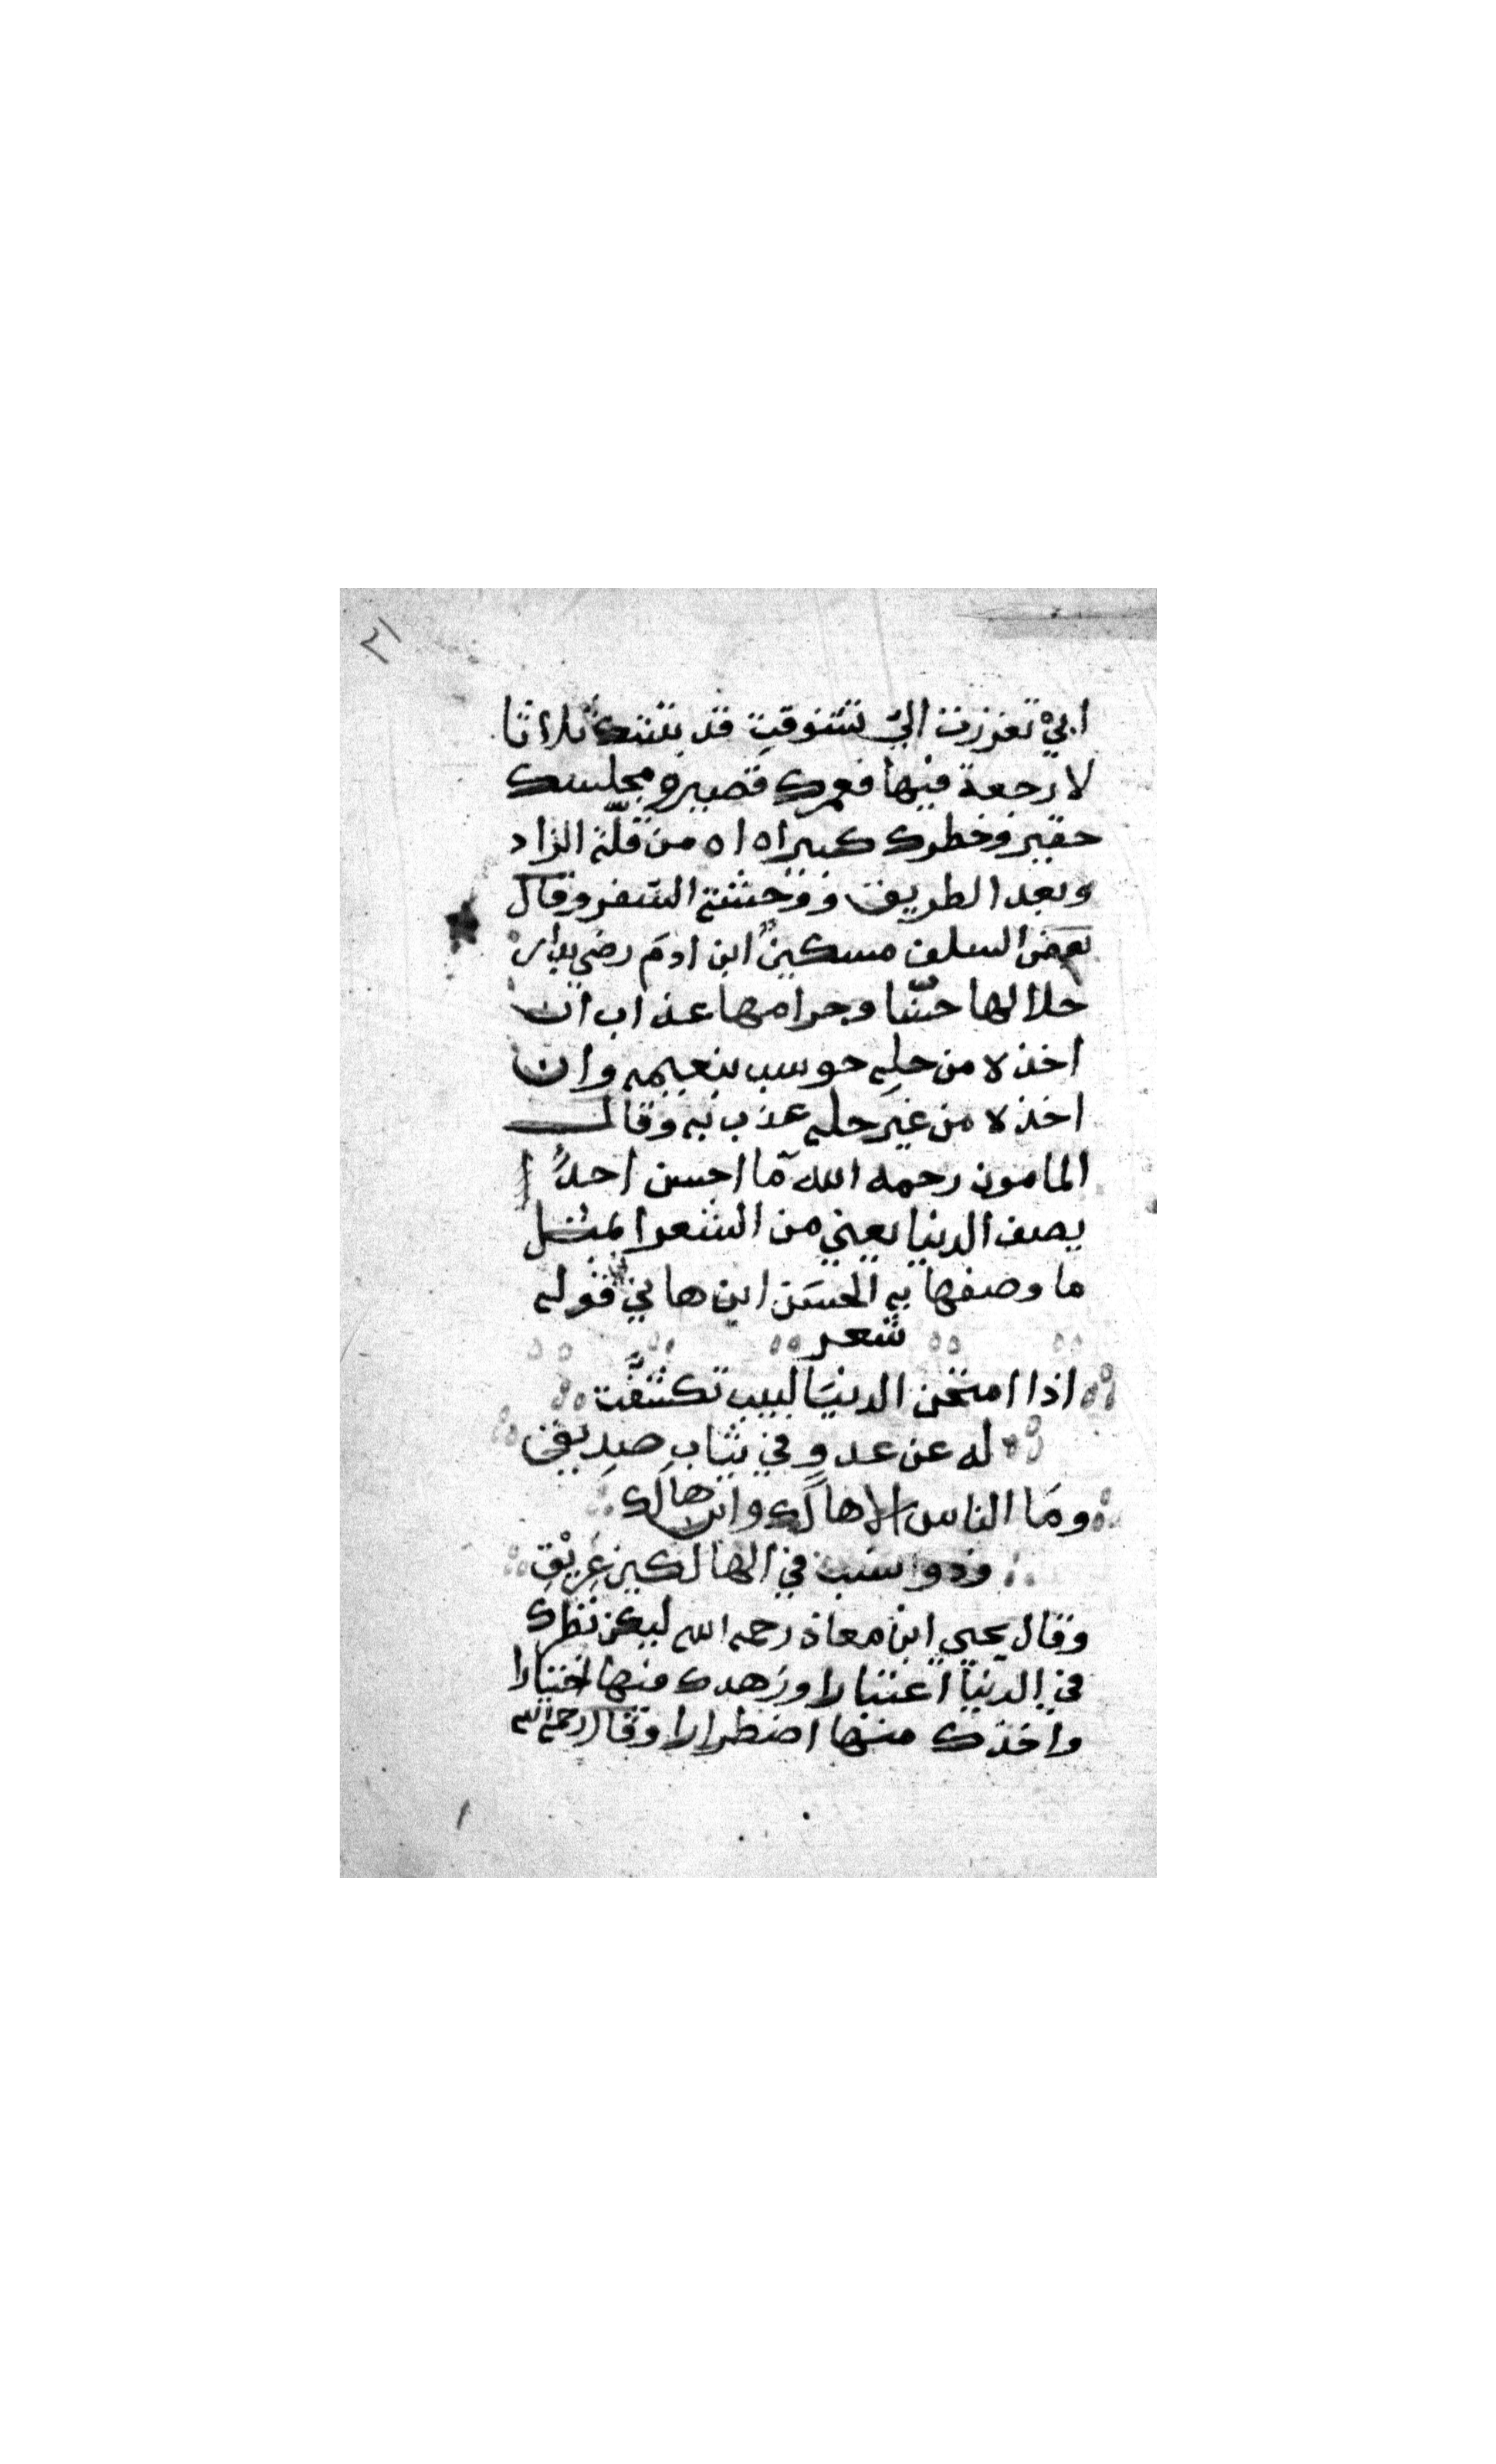 ٢١
ابي تعززت الي تشوقت قد بتتك ثلاثا
لا رجعة فيها فعمرك قصير ومجلسك
حقير وخطرك كبير اه اه من قلّة الزاد
وبعد الطريق ووحشة السّفر وقال
بعض السلف مسكينٌ ابن ادمَ رضي بدار
حلالها حسّنا وحرامها عذاب ان
اخذه من حلِه حوسب بنعيمه وان
اخذه من غير حله عذب به وقال
المامون رحمه الله ما احسن احدًا
يصف الدنيا يعني من الشعرا بمثل
ما وصفها بهِ الحسَن ابن هاني في قوله
شعر
اذا امتحن الدنيَا لبيب تكشفَّت
له عن عدوٍ في ثياب صِديقي
ومَا الناس الا هالَك وابن هالَك
وذوا نسب في الهالكين عَرِيْقِ
وقال يحيي ابن معاذ رحمه الله ليكن نظرك
في الدّنيا اعتبارا وزهدك منها اختيارا
واخذك منها اضطرارا وقال رحمه الله